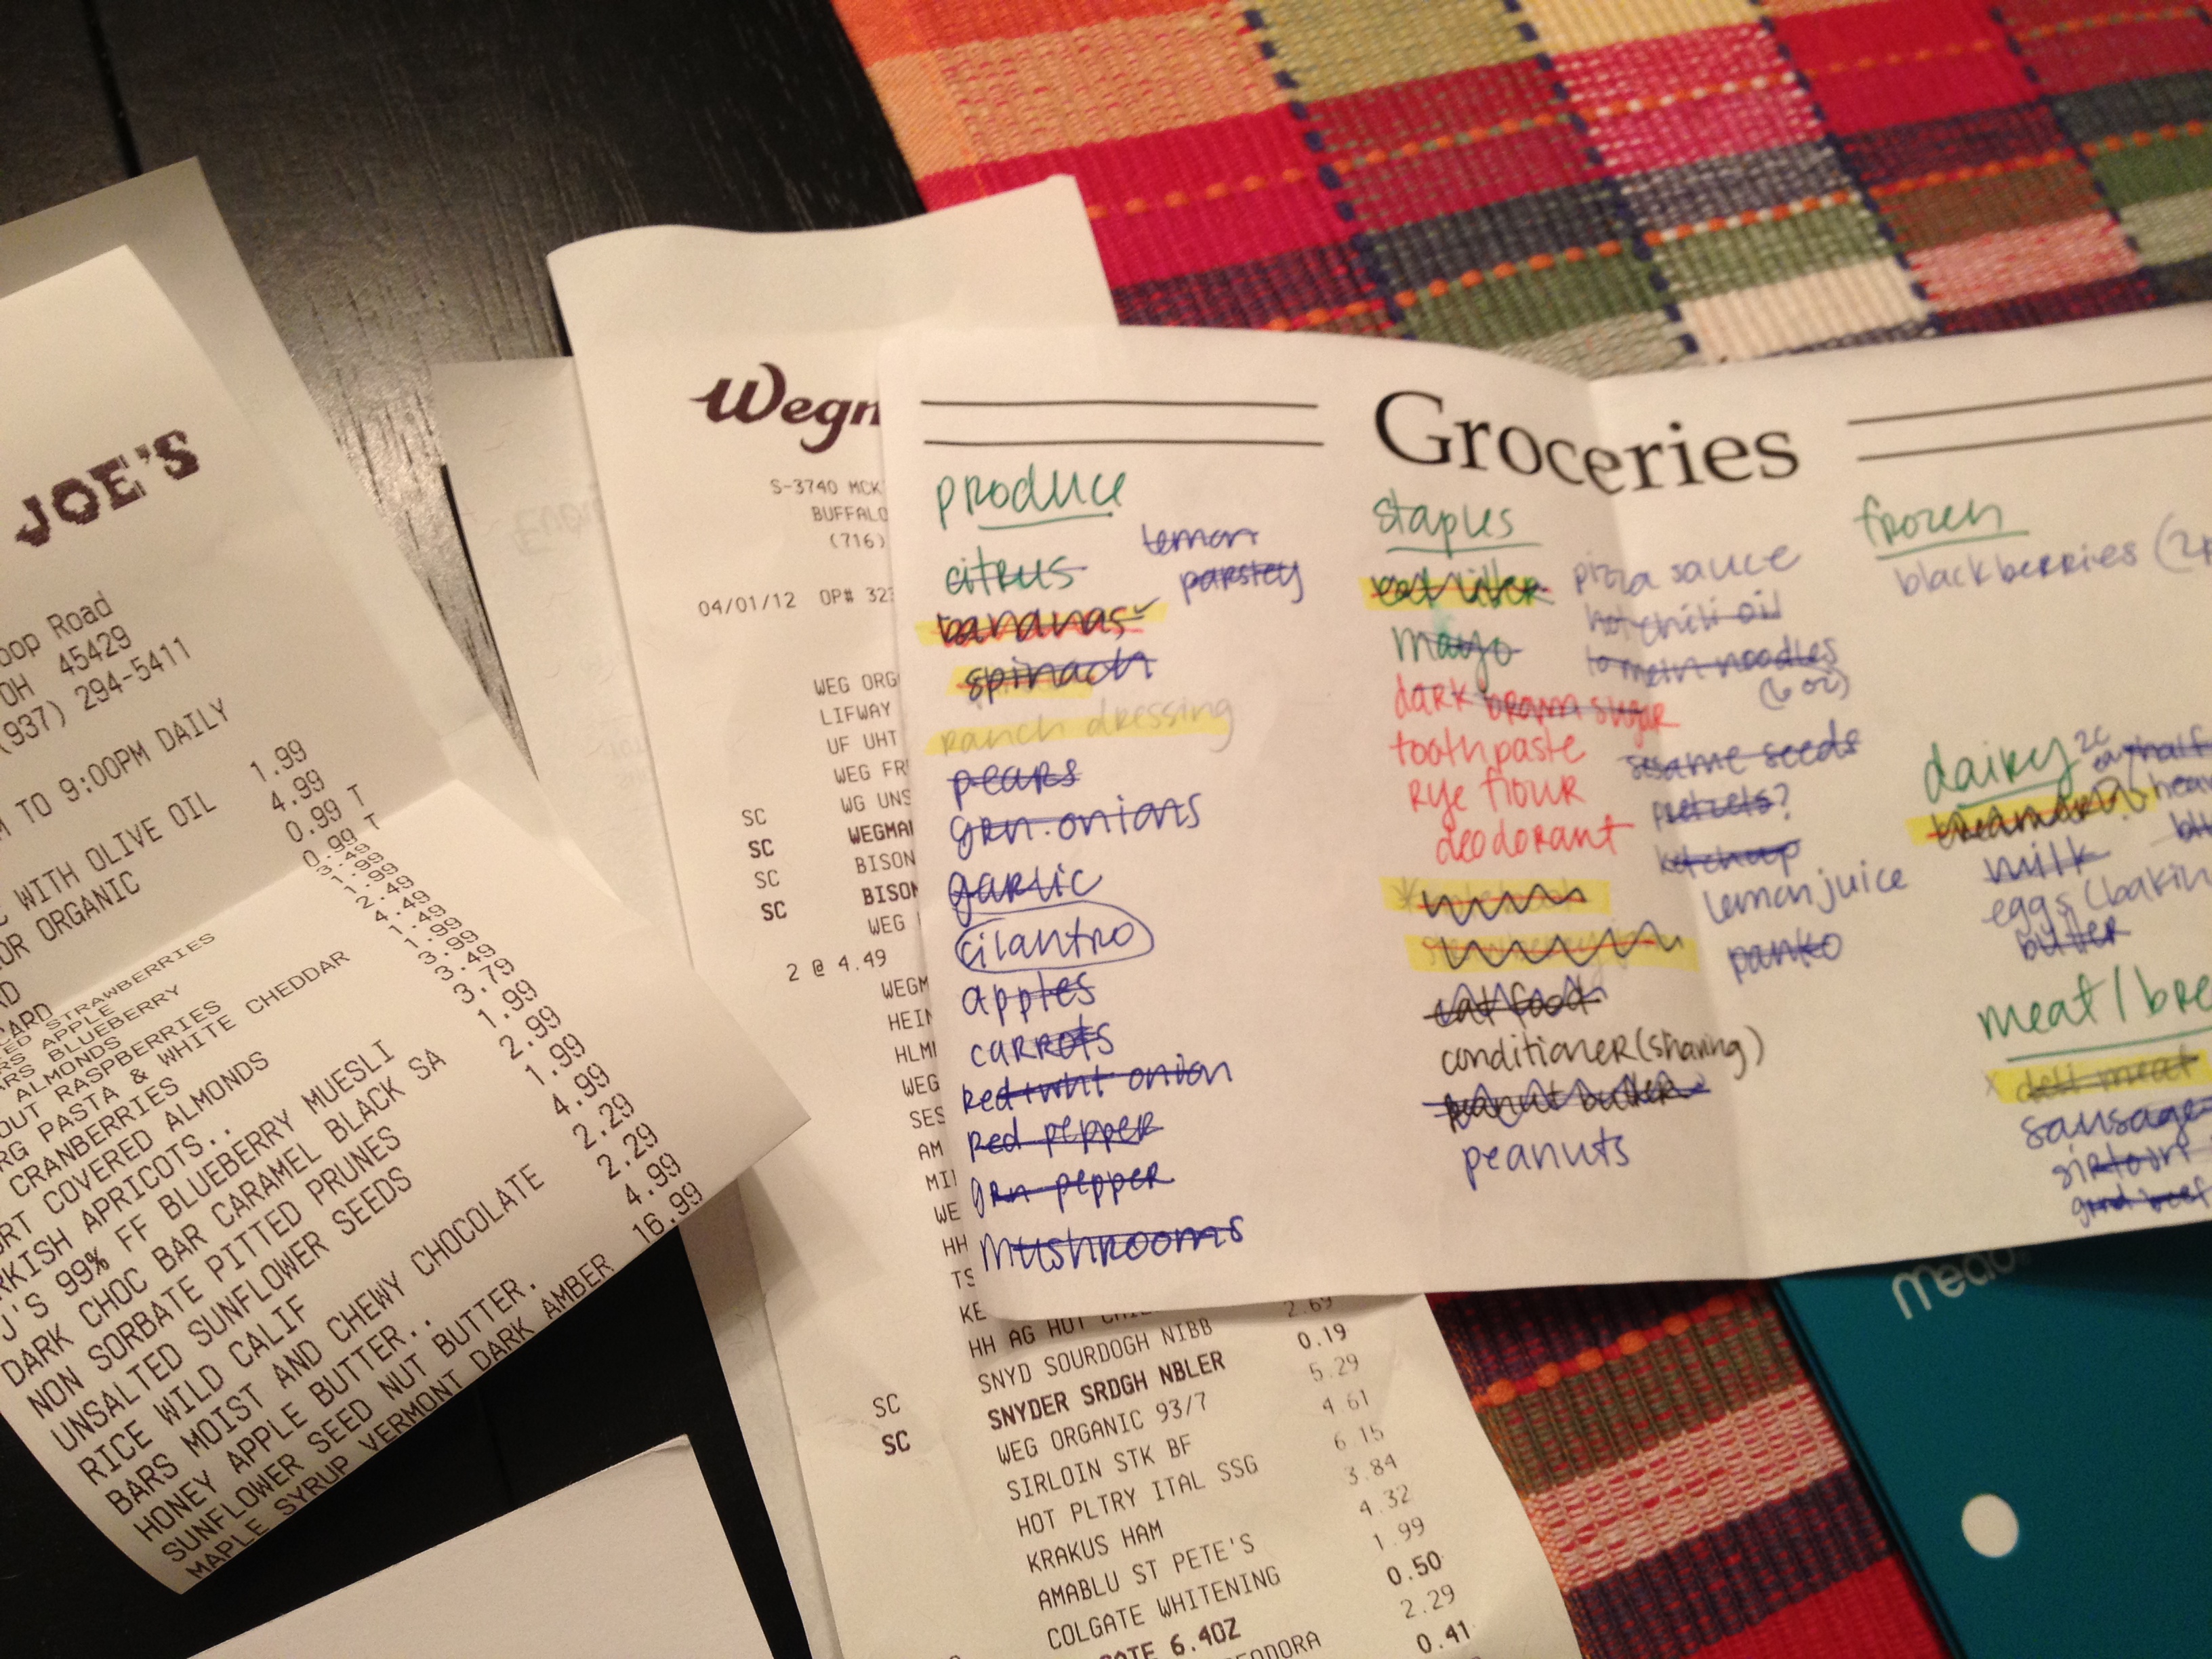 JOE'S
oop Road
OH 45429
(937) 294-5411
M TO 9:00PM DAILY
1.99
C WITH OLIVE OIL 4.99
OR ORGANIC 0.99 T
0.99 T
3.49
CARD 1.99
STRAWBERRIES 2.49
APPLE 4.49
BLUEBERRY 1.49
ALMONDS 1.99
OUT RASPBERRIES 3.99
RG PASTA & WHITE CHEDDAR 3.49
CRANBERRIES 3.79
RT COVERED ALMONDS 1.99
RKISH APRICOTS.. 2.99
J'S 99% FF BLUEBERRY MUESLI 1.99
DARK CHOC BAR CARAMEL BLACK SA 4.99
NON SORBATE PITTED PRUNES 2.29
UNSALTED SUNFLOWER SEEDS 2.29
RICE WILD CALIF 4.99
BARS MOIST AND CHEWY CHOCOLATE 16.99
HONEY APPLE BUTTER..
SUNFLOWER SEED NUT BUTTER.
MAPLE SYRUP VERMONT DARK AMBER
Wegm
S-3740 MCK
BUFFALO
(716)
04/01/12 OP# 323
WEG ORG
LIFWAY
UF UHT
WEG FR
SC WG UNS
SC WEGMAN
SC BISON
SC BISON
WEG
2 @ 4.49
WEGM
HEIN
HLM
WEG
SES
AM
MI
WE
HH
TS
KE
HH AG HOT 2.69
SNYD SOURDOGH NIBB 0.19
SC SNYDER SRDGH NBLER 5.29
SC WEG ORGANIC 93/7 4.61
SIRLOIN STK BF 6.15
HOT PLTRY ITAL SSG 3.84
KRAKUS HAM 4.32
AMABLU ST PETE'S 1.99
COLGATE WHITENING 0.50
6.4OZ 2.29
EODORA 0.41
Groceries
produce
citrus
lemon
parsley
bananas ✓
spinach
ranch dressing
pears
grn. onions
garlic
cilantro
apples
carrots
red + wht onion
red pepper
grn pepper
mushrooms
staples
mayo
dark brown sugar
toothpaste
rye flour
deodorant
cat food
conditioner (shaving)
peanut butter
peanuts
pizza sauce
hot chili oil
lo mein noodles
(6 oz)
sesame seeds
pretzels?
ketchup
lemon juice
panko
frozen
blackberries (2
dairy
creamer
half
milk
eggs (bakin
butter
meat/bre
x deli meat
sausage
sirloin
grnd beef
mead